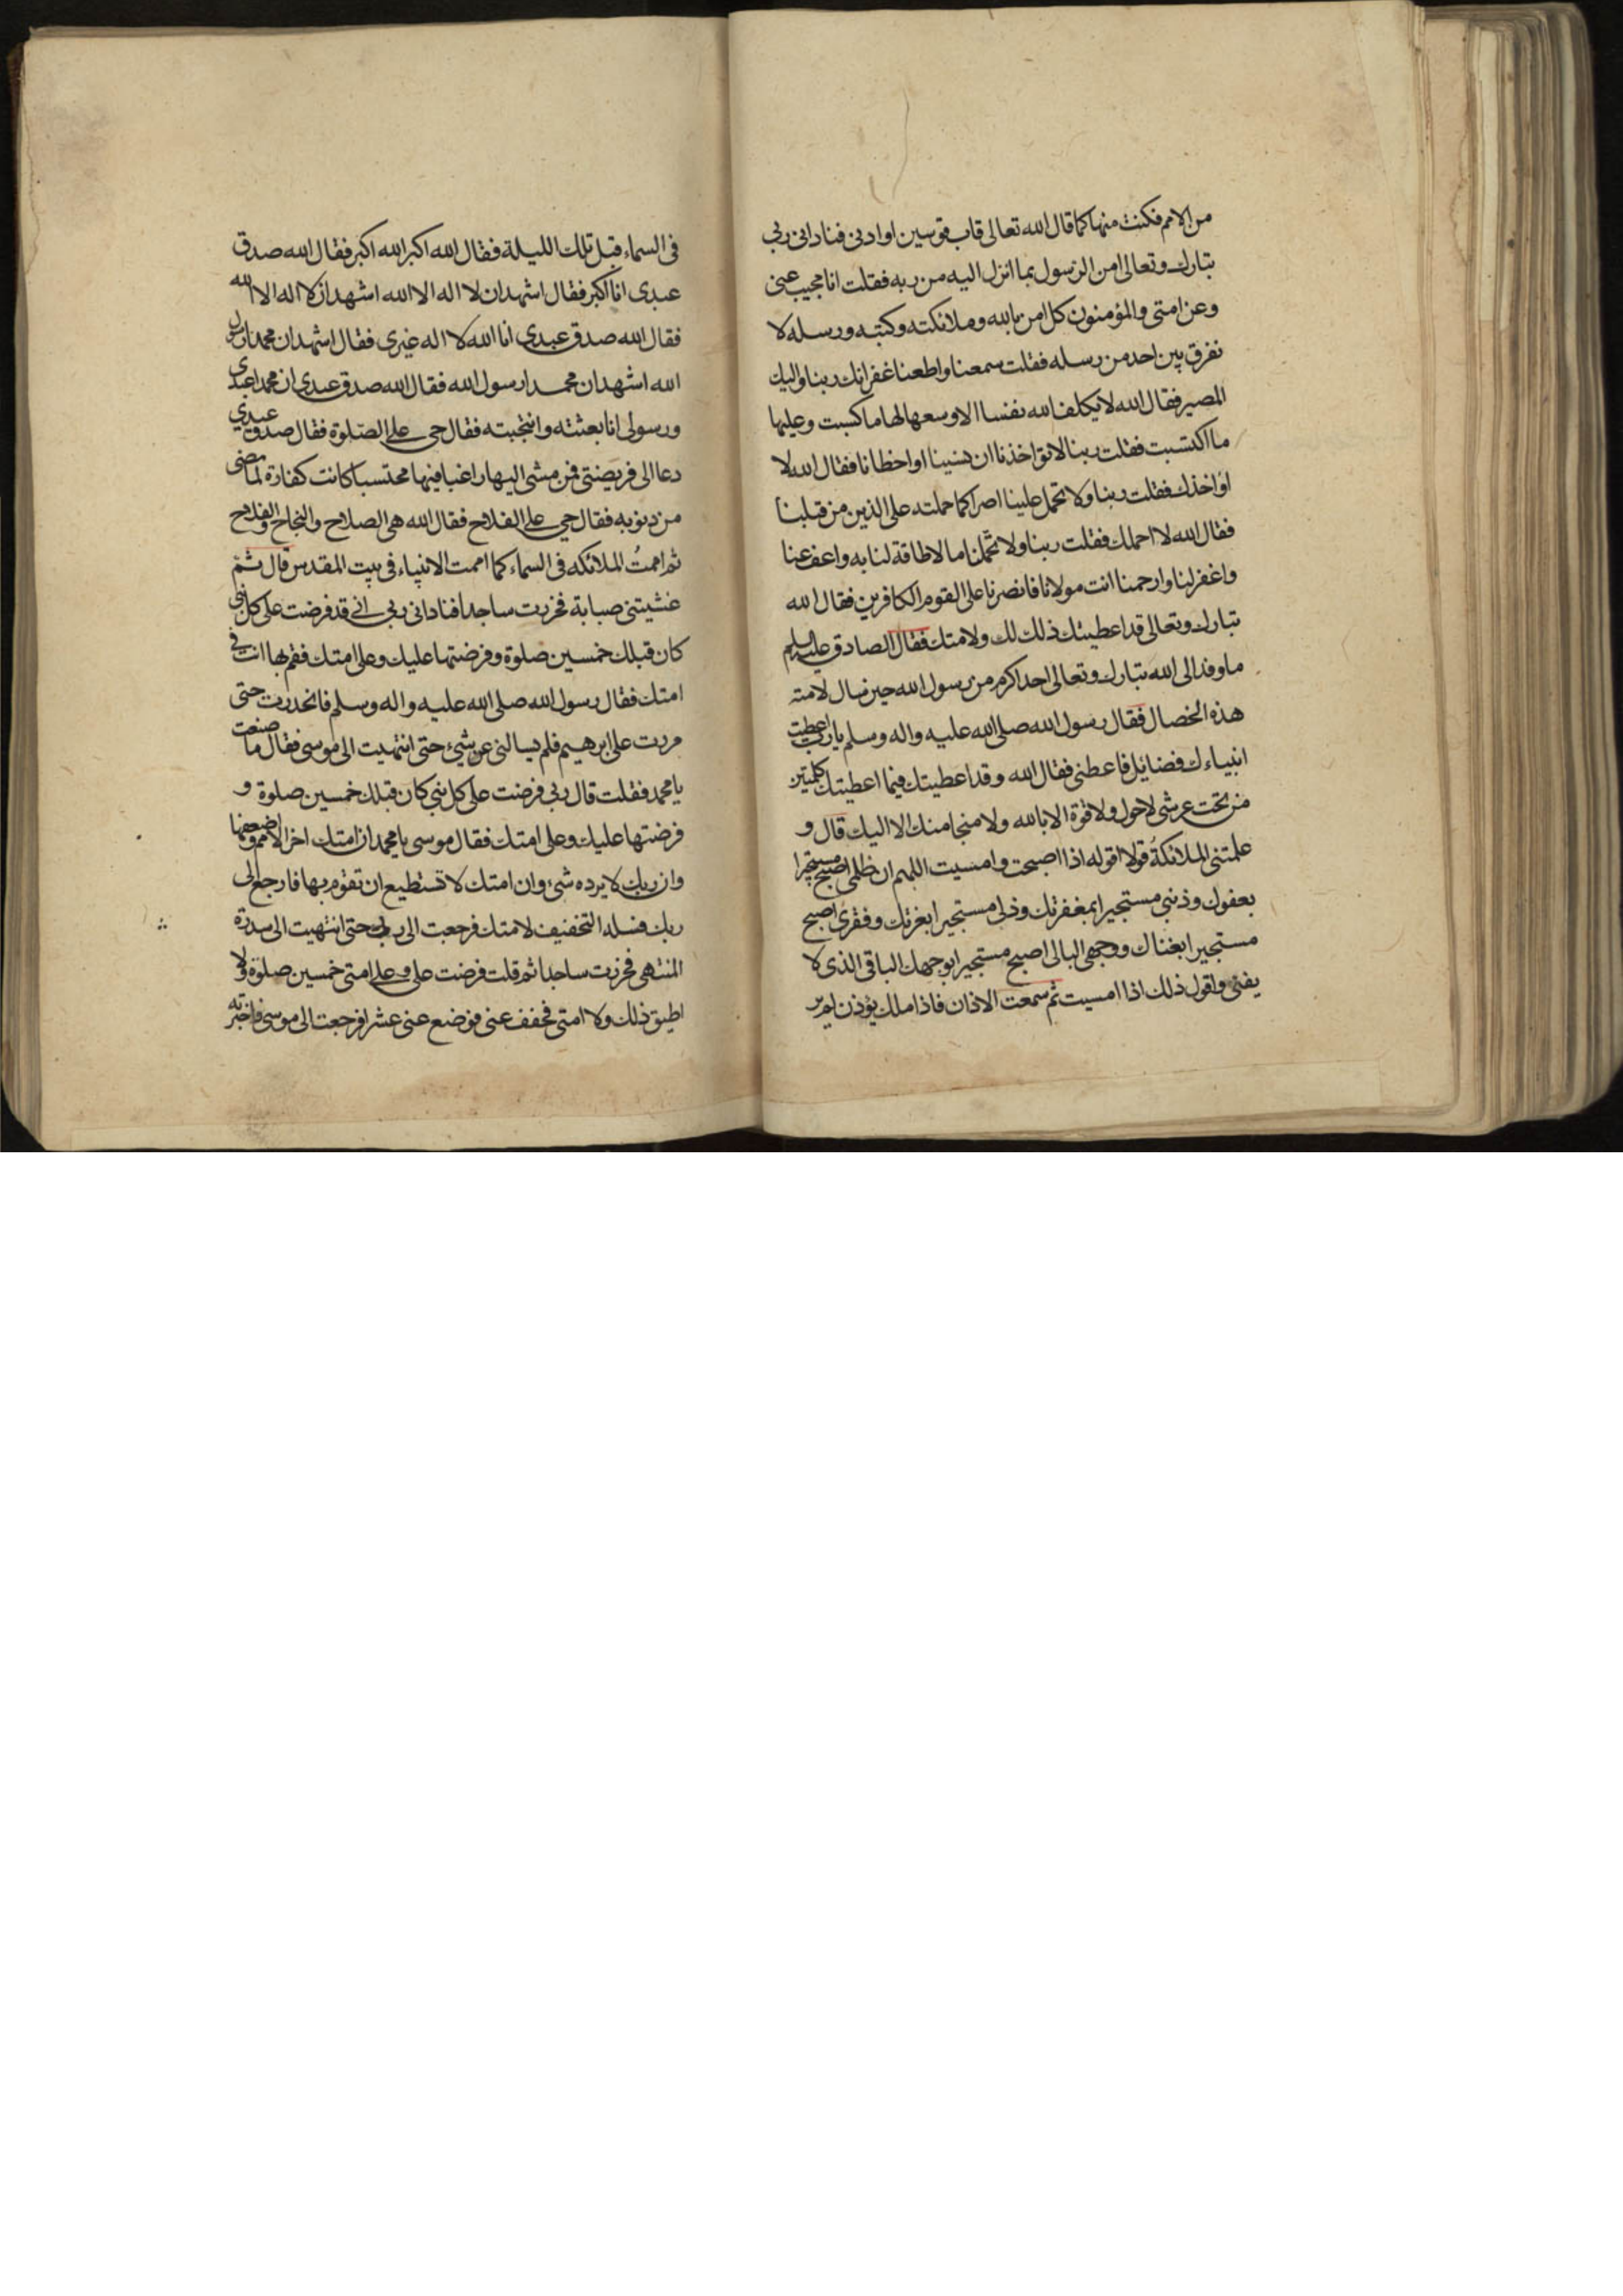 من الامم فكنت منها كما قال الله تعالى قاب قوسين او ادنى فنادانى ربى
تبارك وتعالى امن الرسول بما انزل اليه من ربه فقلت انا مجيب عنى
وعن امتى والمؤمنون كل امن بالله وملائكته وكتبه ورسله لا
نفرق بين احد من رسله فقلت سمعنا واطعنا غفرانك ربنا واليك
المصير فقال الله لا يكلف الله نفسا الا وسعها لها ما كسبت وعليها
ما اكتسبت فقلت ربنا لا تؤاخذنا ان نسينا او اخطانا فقال الله لا
اؤاخذك فقلت ربنا ولا تحمل علينا اصرا كما حملته على الذين من قبلنا
فقال الله لا احملك فقلت ربنا ولا تحملنا ما لا طاقة لنا به واعف عنا
واغفر لنا وارحمنا انت مولانا فانصرنا على القوم الكافرين فقال الله
تبارك وتعالى قد اعطيتك ذلك لك ولامتك فقال الصادق عليه السلم
ما وفد الى الله تبارك وتعالى احد اكرم من رسول الله حين سال لامته
هذه الخصال فقال رسول الله صلى الله عليه واله وسلم يارب اعطيت
انبياءك فضايل فاعطنى فقال الله وقد اعطيتك فيما اعطيتك كلمتين
من تحت عرشى لا حول ولا قوة الا بالله ولا منجا منك الا اليك قال و
علمتنى الملائكةُ قولا اقوله اذا اصبحت وامسيت اللهم ان ظلمى اصبح مستجيرا
بعفوك وذنبى مستجيرا بمغفرتك وذلى مستجيرا بعزتك وفقرى اصبح
مستجيرا بغناك ووجهى البالى اصبح مستجيرا بوجهك الباقى الذى لا
يفنى واقول ذلك اذا امسيت ثم سمعت الاذان فاذا ملك يؤذن لم ير
فى السماء قبل تلك الليلة فقال الله اكبر الله اكبر فقال الله صدق
عبدى انا اكبر فقال اشهد ان لا اله الا الله اشهد ان لا اله الا الله
فقال الله صدق عبدى انا الله لا اله غيرى فقال اشهد ان محمدا رسول
الله اشهد ان محمدا رسول الله فقال الله صدق عبدى ان محمدا عبدى
ورسولى انا بعثته وانتجبته فقال حى على الصّلوة فقال صدق عبدي
دعا الى فريضتى فمن مشى اليها راغبا فيها محتسبا كانت كفارة لما مضى
من ذنوبه فقال حى على الفلاح فقال الله هى الصلاح والنجاح والفلاح
ثم اممتُ الملائكه فى السماء كما اممت الانبياء فى بيت المقدس قال ثم
غشيتنى صبابة فخررت ساجدا فنادانى ربى انى قد فرضت على كل نبى
كان قبلك خمسين صلوة وفرضتها عليك وعلى امتك فقم بها انت فى
امتك فقال رسول الله صلى الله عليه واله وسلم فانحدرت حتى
مررت على ابرهيم فلم يسالنى عن شىء حتى انتهيت الى موسى فقال ما صنعت
يا محمد فقلت قال ربى فرضت على كل نبى كان قبلك خمسين صلوة و
فرضتها عليك وعلى امتك فقال موسى يا محمد ان امتك اخر الامم واضعفها
وان ربك لا يرده شىء وان امتك لا تستطيع ان تقوم بها فارجع الى
ربك فسله التخفيف لامتك فرجعت الى ربى حتى انتهيت الى سدرة
المنتهى فخررت ساجدا ثم قلت فرضت على وعلى امتى خمسين صلوة ولا
اطيق ذلك ولا امتى فخفف عنى فوضع عنى عشرا فرجعت الى موسى فاخبرته